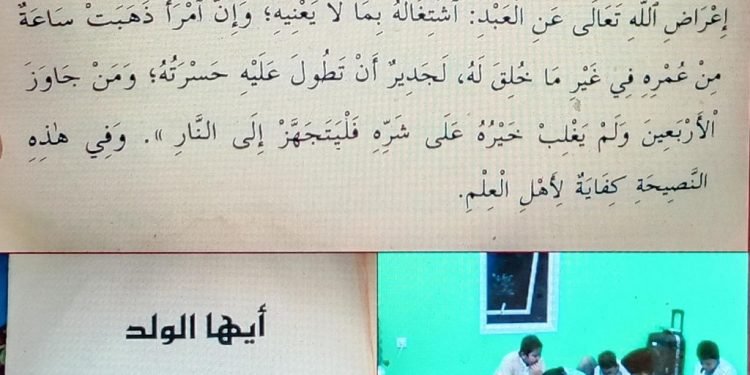 إِعْرَاضِ ٱللَّهِ تَعَالَى عَنِ الْعَبْدِ: ٱشْتِغَالُهُ بِمَا لَا يَعْنِيهِ؛ وَإِنَّ ٱمْرَأً ذَهَبَتْ سَاعَةٌ
مِنْ عُمْرِهِ فِي غَيْرِ مَا خُلِقَ لَهُ، لَجَدِيرٌ أَنْ تَطُولَ عَلَيْهِ حَسْرَتُهُ؛ وَمَنْ جَاوَزَ
ٱلْأَرْبَعِينَ وَلَمْ يَغْلِبْ خَيْرُهُ عَلَى شَرِّهِ فَلْيَتَجَهَّزْ إِلَى النَّارِ». وَفِي هٰذِهِ
النَّصِيحَةِ كِفَايَةٌ لِأَهْلِ الْعِلْمِ.
أيها الولد